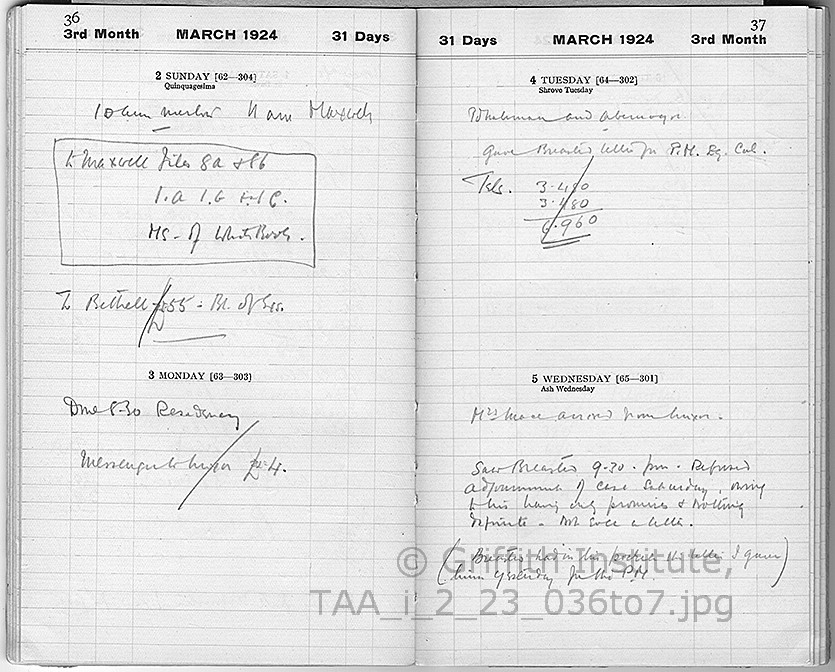 36
3rd Month MARCH 1924 31 Days
2 SUNDAY [62—304]
Quinquagesima
10 am 11 am Maxwell
To Maxwell Files 8a + 8b
1.a 1.b + 1c.
MS. of White Book.
To Bethell £55 - Bl. of Eg.
3 MONDAY [63—303]
Dine 8-30 Residency
Messenger to Luxor £4.
37
31 Days MARCH 1924 3rd Month
4 TUESDAY [64—302]
Shrove Tuesday
and
Gave Breasted letter for P.M. Eg. Cab.
Tels. 3.480
3.480
6.960
5 WEDNESDAY [65—301]
Ash Wednesday
Mrs Mace arrived from Luxor.
Saw Breasted 9-30 . pm - Refused
adjournment of case Saturday, owing
to his having only promises & nothing
definite - Not even a letter.
(Breasted had in his pocket the letter I gave
him yesterday for the P.M.)
© Griffith Institute,
TAA_i_2_23_036to7.jpg